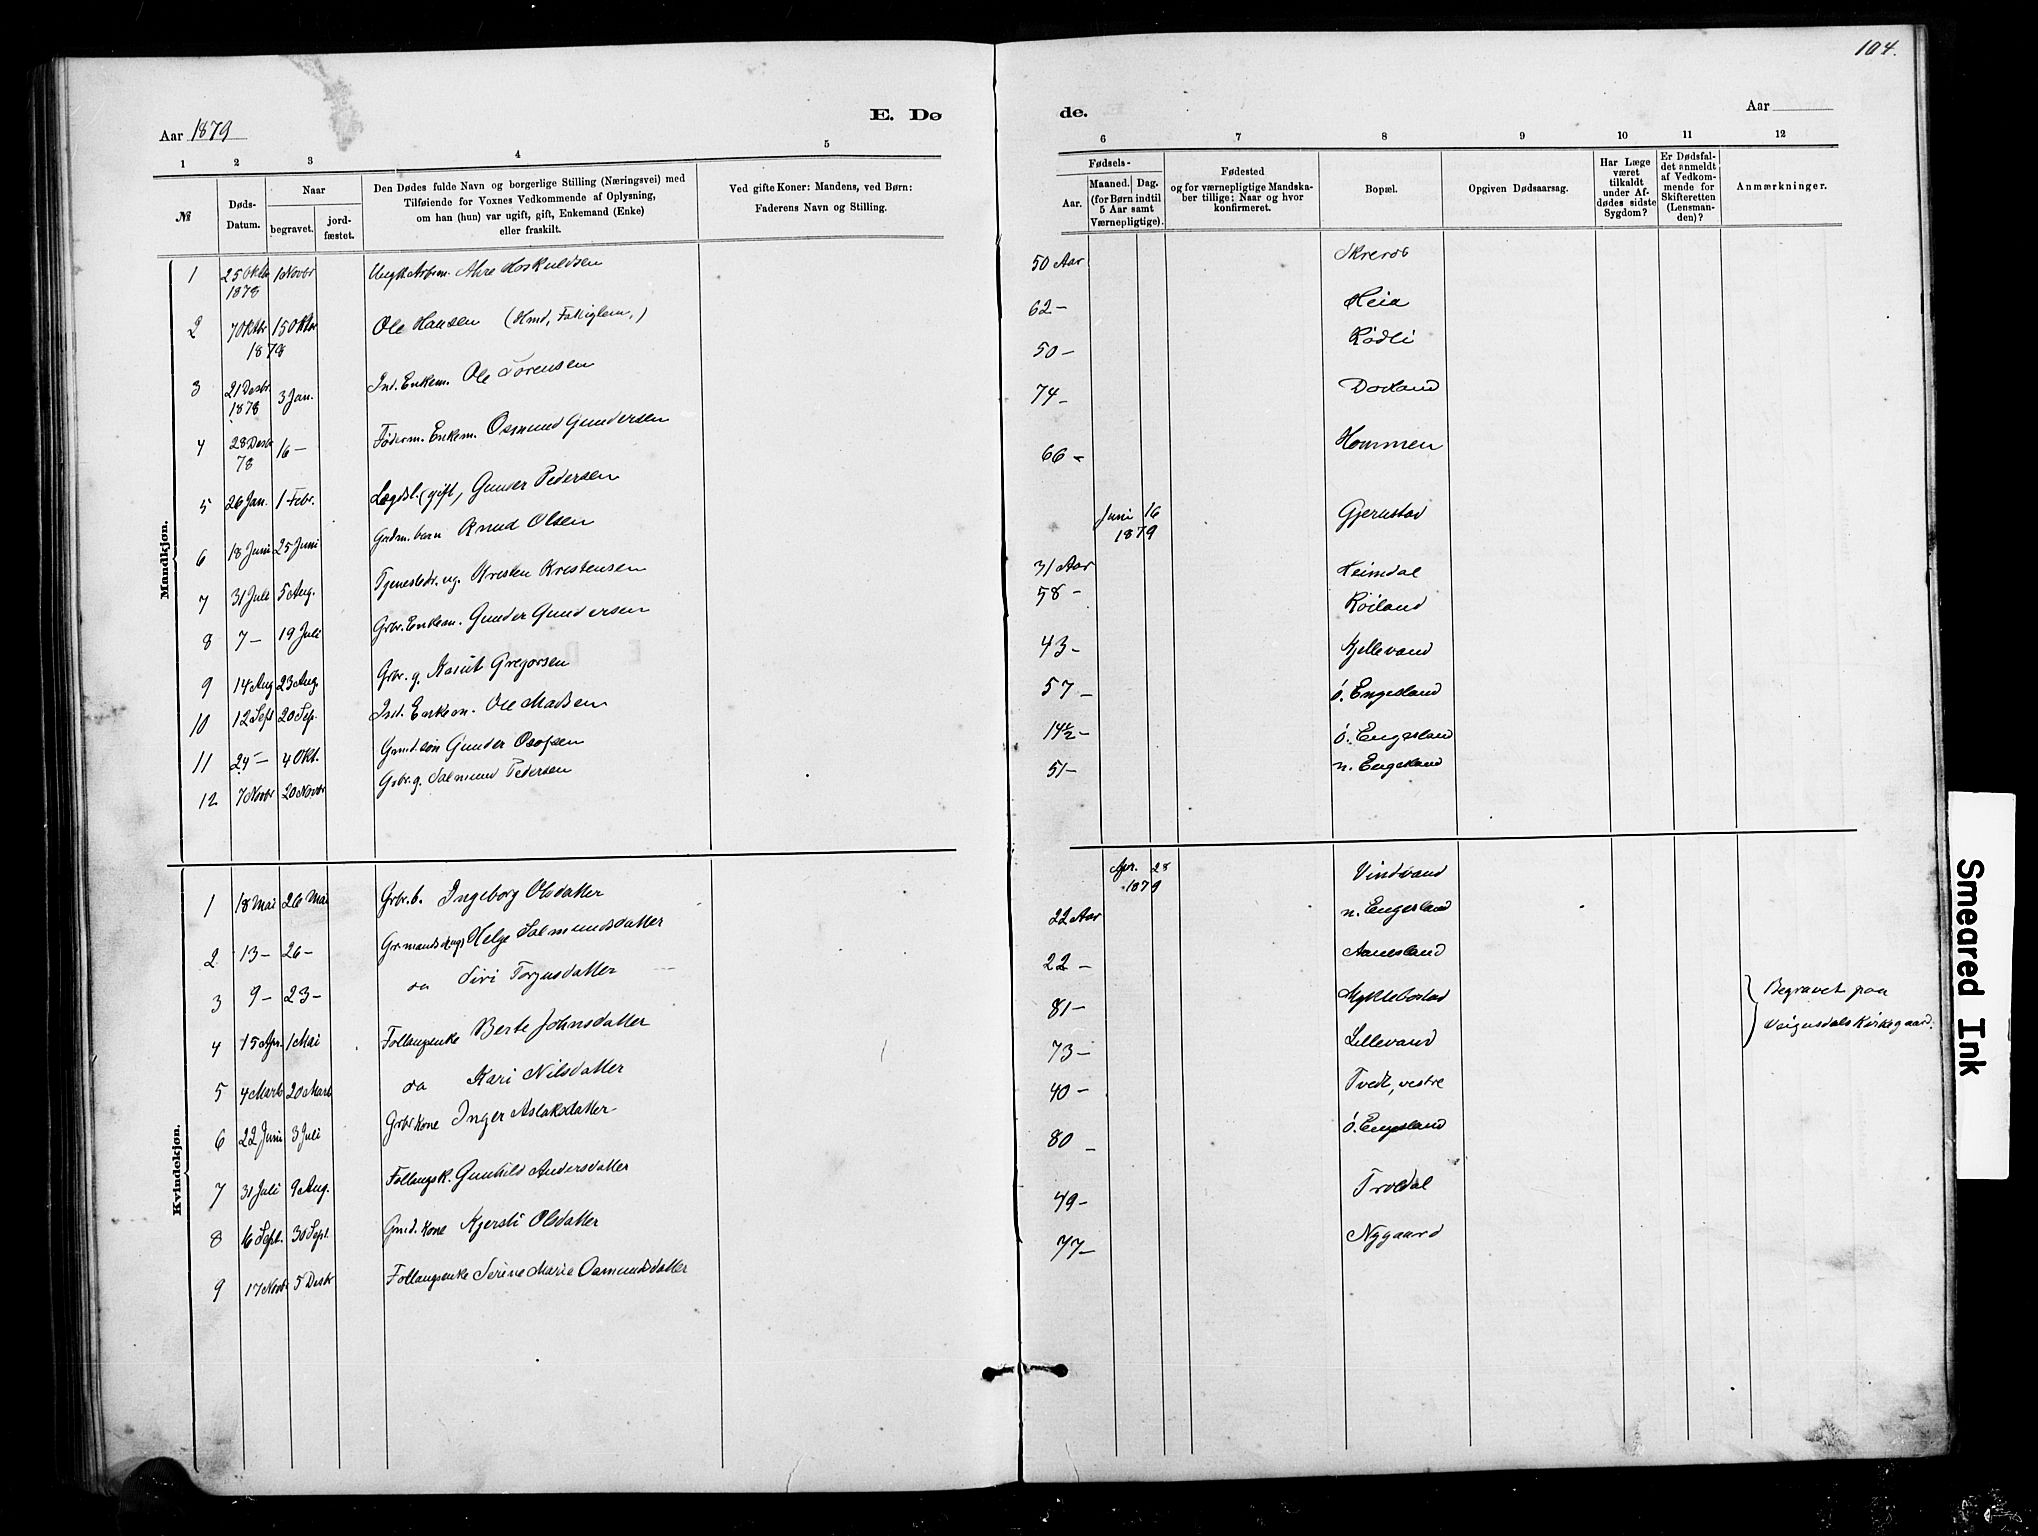 104.
Aar 1879
E. Dø
de.
Aar
1 2 3 4 5
6 7 8 9 10 11 12
№
Døds-
Datum.
Naar
begravet.
jord-
fæstet.
Den Dødes fulde Navn og borgerlige Stilling (Næringsvei) med
Tilføiende for Voxnes Vedkommende af Oplysning,
om han (hun) var ugift, gift, Enkemand (Enke)
eller fraskilt.
Ved gifte Koner: Mandens, ved Børn:
Faderens Navn og Stilling.
Fødsels-
Aar.
Maaned. Dag.
(for Børn indtil
5 Aar samt
Værnepligtige).
Fødested
og for værnepligtige Mandska-
ber tillige: Naar og hvor
konfirmeret.
Bopæl.
Opgiven Dødsaarsag.
Har Læge
været
tilkaldt
under Af-
dødes sidste
Sygdom?
Er Dødsfal-
det anmeldt
af Vedkom-
mende for
Skifteretten
(Lensman-
den)?
Anmærkninger.
Mandkjøn.
1 25 Oktbr 1878 1 Novbr Ungk. Arbm. Avre Hoskuldsen 50 Aar
2 7 Oktbr 1878 15 Oktbr Ole Hansen (Hmd, Fattiglem,) 62 – Heia
3 21 Desbr 1878 3 Jan. Ind. Enkem. Ole Sørensen 50 – Rødli
4 28 Desbr 78 16 – Føderm. Enkem. Osmund Gundersen 74 – Dovland
5 26 Jan. 1 Febr. Lægdsl. (gift, Gunder Pedersen 66 – Hommen
6 18 Juni 25 Juni Grdm. barn Knud Olsen Juni 16 1879 Gjerustad
7 31 Juli 5 Aug. Tjenestedr. ug. Kristen Kristensen 31 Aar Heimdal
8 7 – 19 Juli Grbr. Enkem. Gunder Gundersen 58 – Røiland
9 14 Aug 23 Aug. Grbr. g. Knut Gregorsen 43 – Kjellevand
10 12 Sept 20 Sep. Ind. Enkem. Ole Madsen 57 – ó. Engesland
11 24 – 4 Okt. Grmd. søn Gunder Olofsen 14½ – ó. Engesland
12 7 Novbr 20 Novbr Grbr. g. Salmund Pedersen 51 – n. Engesland
Kvindekjøn.
1 18 Mai 26 Mai Grbr. b. Ingeborg Olsdatter Apr. 28 1879 Vindvand
2 13 – 26 – Helge Salmundsdatter 22 Aar n. Engesland
3 9 – 23 – da Siri Torjusdatter 22 – Aanesland
4 15 Apr. 1 Mai Follaugsenke Berte Johnsdatter 81 – Myklebostad
5 4 Marts 20 Marts da Kari Nilsdatter 73 – Lillevand
6 22 Juni 3 Juli Grbr kone Inger Aslaksdatter 40 – Tvedt, vestre
7 31 Juli 9 Aug. Follaugsk. Gunhild Andersdatter 80 – ó. Engesland
8 16 Sept. 30 Sept. Gmd. kone Kjersti Olsdatter 49 – Troldal
9 17 Novbr 5 Desbr Follaugsenke Serine Marie Osmundsdatter 77 – Nygaard
Begravet paa
Veigusdals Kirkegaard.
Smeared Ink